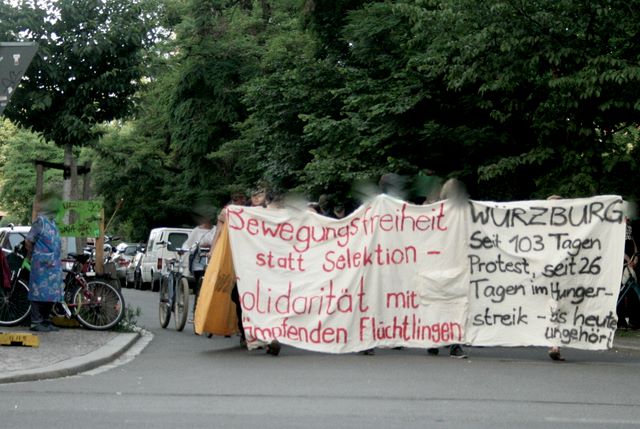 Bewegungsfreiheit
statt Selektion -
Solidarität mit
kämpfenden Flüchtlingen
WÜRZBURG
Seit 103 Tagen
Protest, seit 26
Tagen im Hunger-
streik - bis heute
ungehört